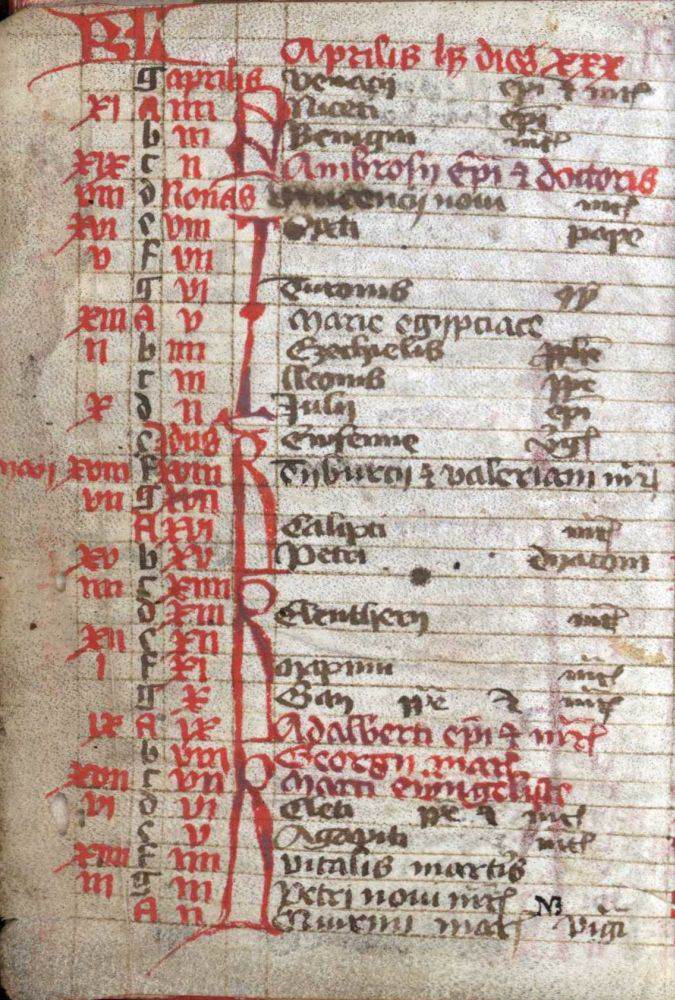 KL Aprilis hʒ dies xxx
g aprilis epi ⁊ mr̄
xi A iiii Niceti epi
b iii Benigni mr̄
xix c ii Ambrosij epi ⁊ doctoris
viii d Nonas noui mr̄
xvi e viii Sixti pape
v f vii
g vi
xiii A v Marie egypciace
ii b iiii Ezechielis pphe
c iii lleonis ppe
x d ii Julij epi
e Jdus Eufemie v̄gī
xviii f xviii Tyburcij ⁊ valeriani mr̄
vii g xvii
A xvi Calipti mr̄
xv b xv Petri dyaconi
iiii c xiiii
d xiii Eleutherij mr̄
xii e xii
i f xi mr̄
g x Gaij ppe ⁊ mr̄
ix A ix Adalberti epi ⁊ mr̄
b viii Georgij mar̄
xvii c vii Marci ewangeliste
vi d vi Cleti ppe ⁊ mr̄
e v Agapiti mr̄
xiiii f iiii vitalis martiris
iii g iii Petri noui mr̄
A ii mar̄ vigi